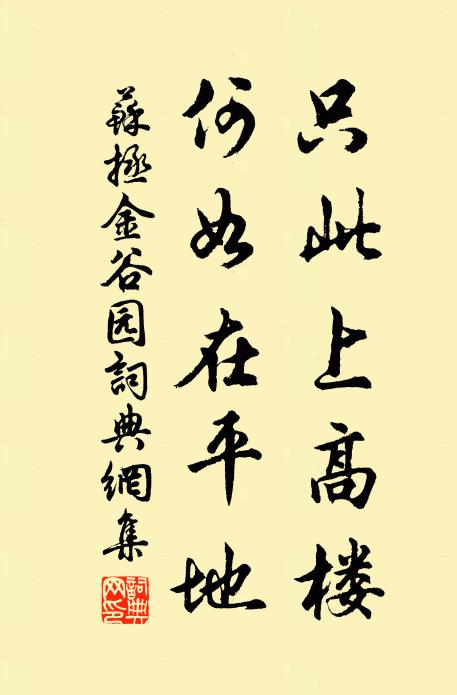 只此上高楼
何如在平地
蘇拯金谷园詞典網集
詞典
网印